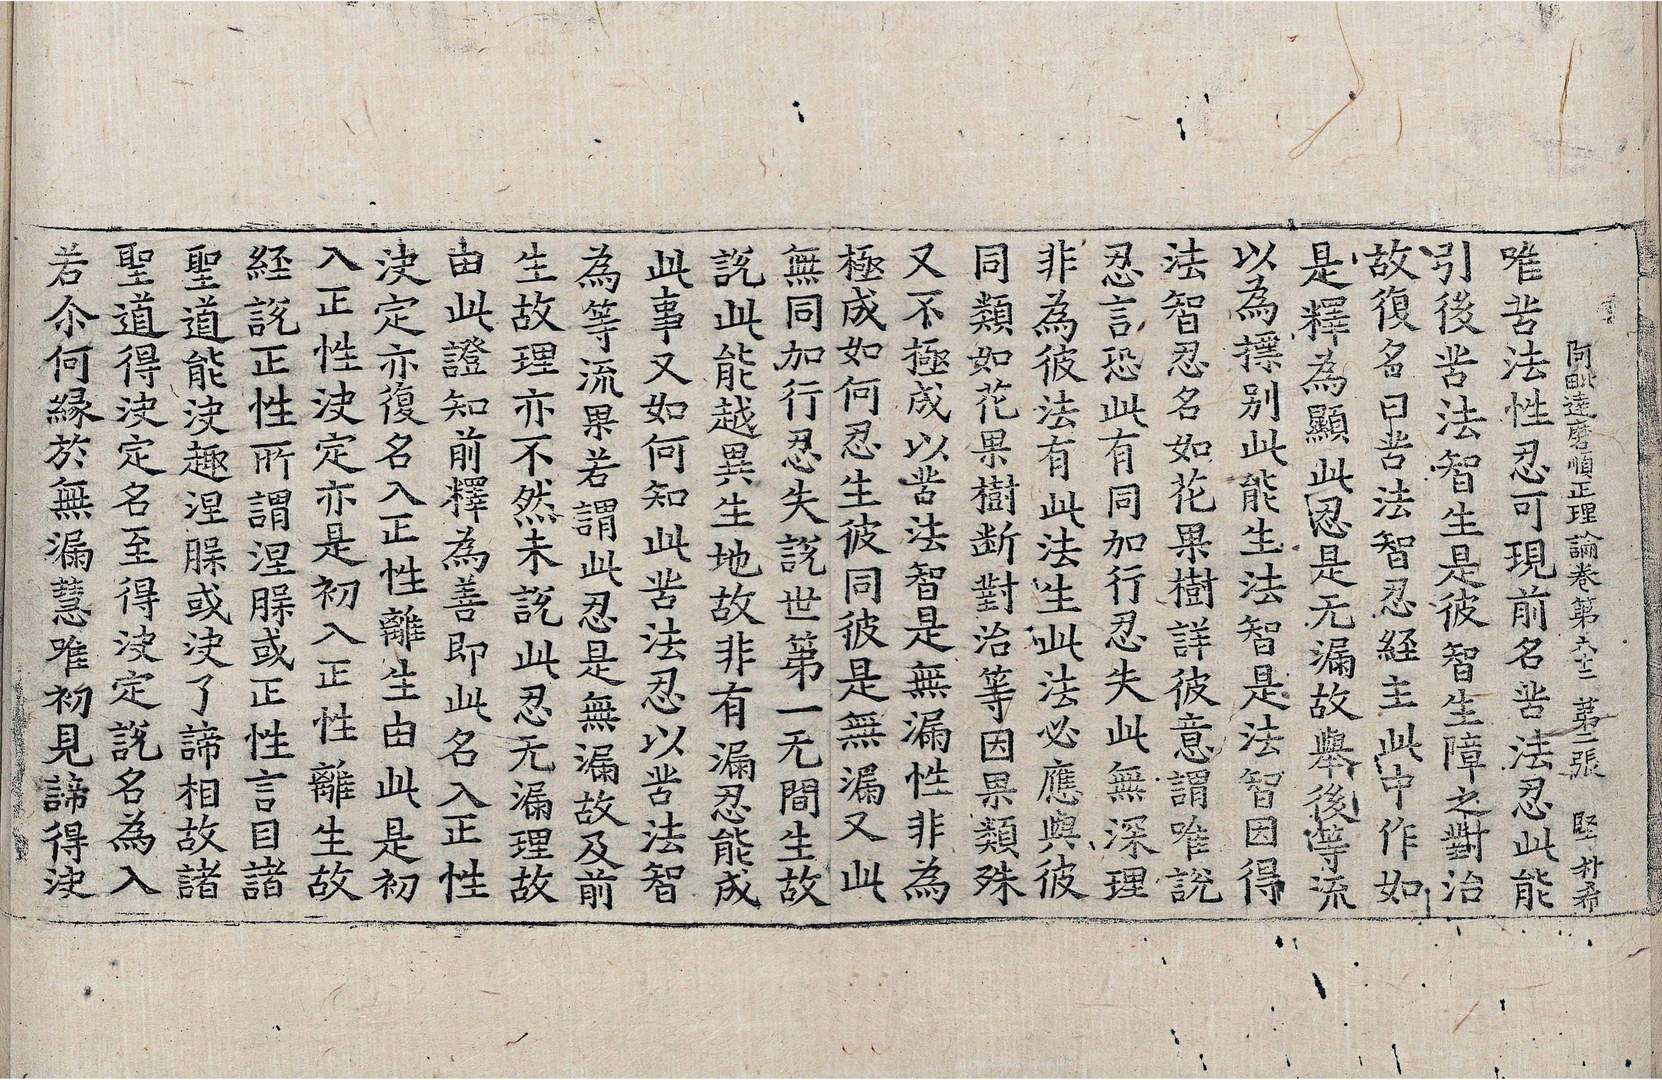 阿毗達磨順正理論卷第六十二 第二張 堅 朴希
唯苦法性忍可現前名苦法忍此能
引後苦法智生是彼智生障之對治
故復名曰苦法智忍經主此中作如
是釋為顯此忍是无漏故舉後等流
以為摽別此能生法智是法智因得
法智忍名如花果樹詳彼意謂唯說
忍言恐此有同加行忍失此無深理
非為彼法有此法生此法必應與彼
同類如花果樹斷對治等因果類殊
又不極成以苦法智是無漏性非為
極成如何忍生彼同彼是無漏又此
無同加行忍失說世第一无間生故
說此能越異生地故非有漏忍能成
此事又如何知此苦法忍以苦法智
為等流果若謂此忍是無漏故及前
生故理亦不然未說此忍无漏理故
由此證知前釋為善即此名入正性
决定亦復名入正性離生由此是初
入正性决定亦是初入正性離生故
経說正性所謂涅槃或正性言目諸
聖道能决趣涅槃或决了諦相故諸
聖道得决定名至得决定說名為入
若尒何緣於無漏慧唯初見諦得决